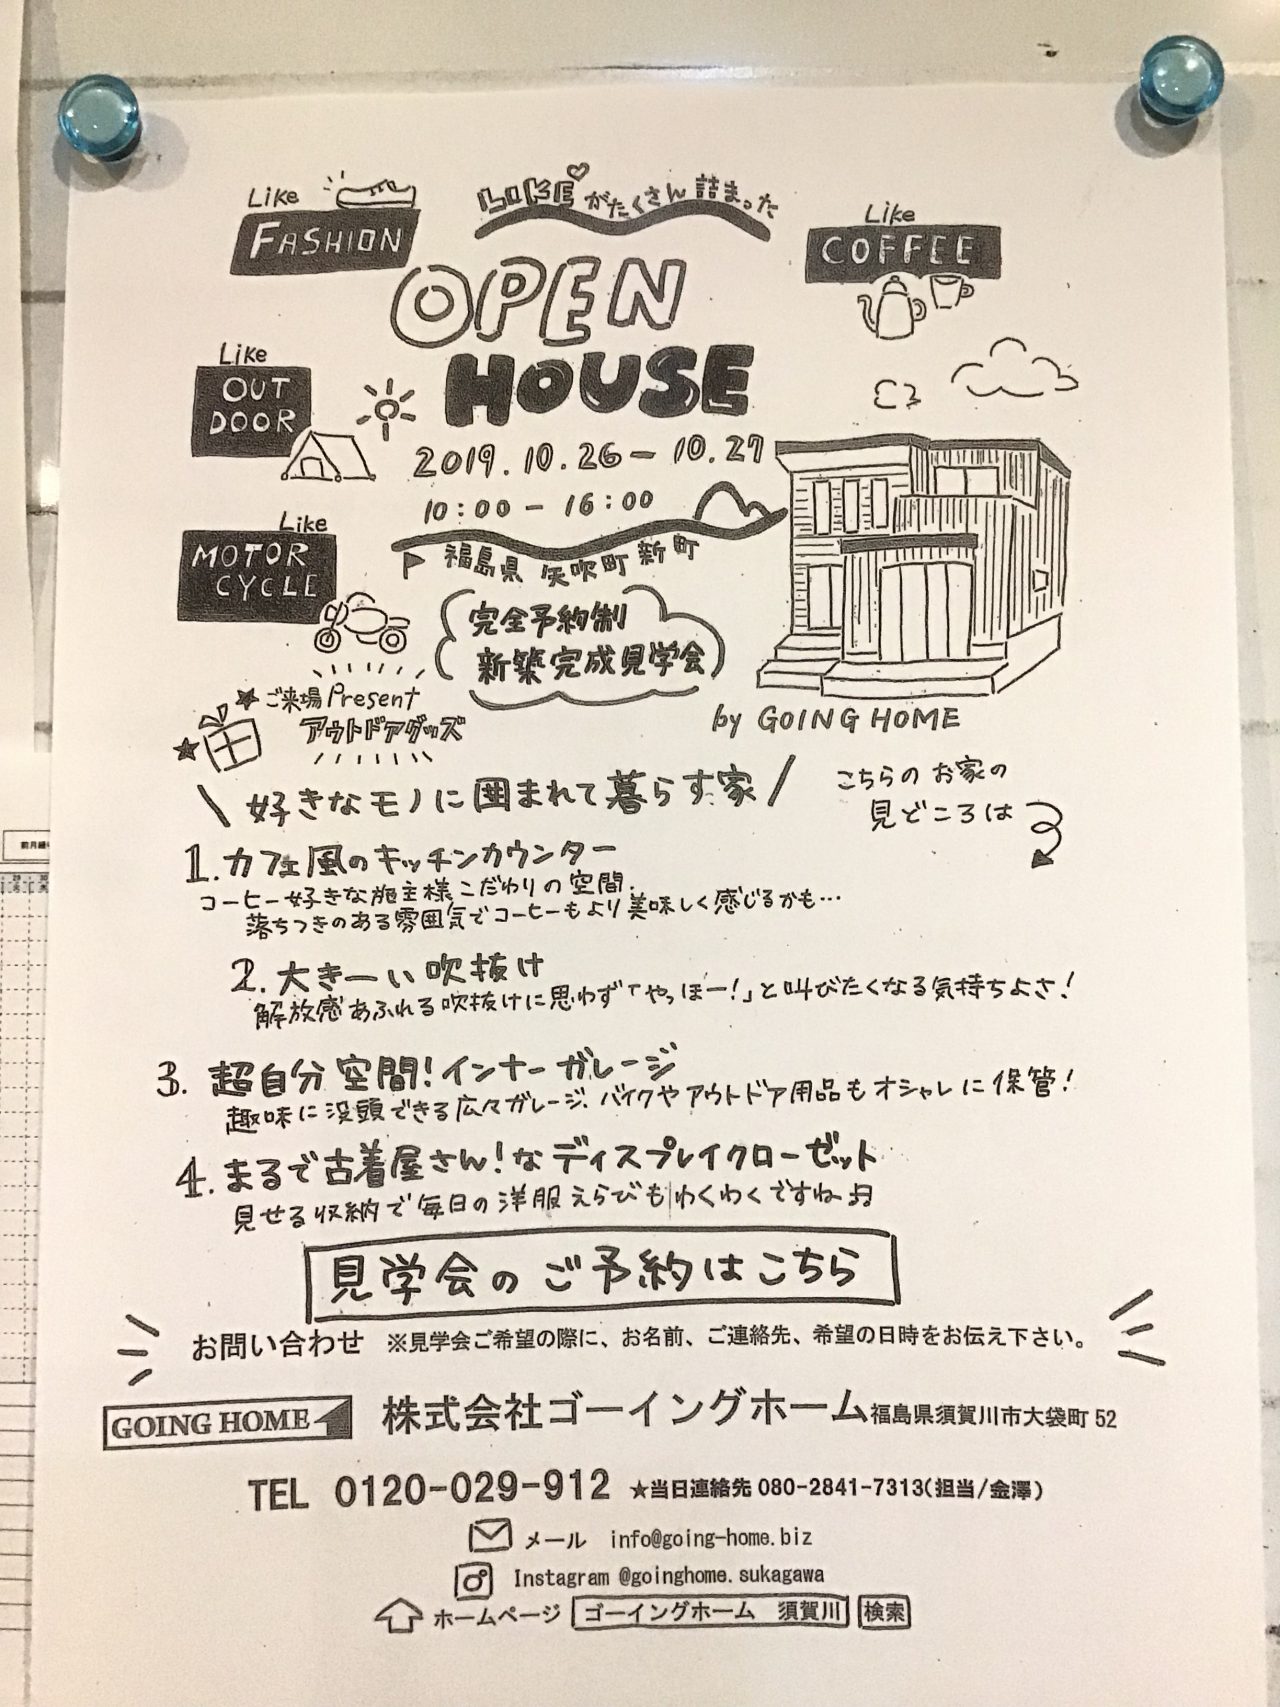 Like
FASHION
LIKE♡がたくさん詰まった
Like
COFFEE
OPEN
HOUSE
Like
OUT
DOOR
2019.10.26-10.27
10:00-16:00
Like
MOTOR
CYCLE
福島県 矢吹町 新町
完全予約制
新築完成見学会
by GOING HOME
★ご来場Present
アウトドアグッズ
\好きなモノに囲まれて暮らす家/
こちらのお家の
見どころは
1.カフェ風のキッチンカウンター
コーヒー好きな施主様こだわりの空間.
落ちつきのある雰囲気でコーヒーもより美味しく感じるかも…
2.大きーい吹抜け
解放感あふれる吹抜けに思わず「やっほー!」と叫びたくなる気持ちよさ!
3.超自分空間!インナーガレージ
趣味に没頭できる広々ガレージ、バイクやアウトドア用品もオシャレに保管!
4.まるで古着屋さん!なディスプレイクローゼット
見せる収納で毎日の洋服えらびもわくわくですね♫
見学会のご予約はこちら
お問い合わせ ※見学会ご希望の際に、お名前、ご連絡先、希望の日時をお伝え下さい。
GOING HOME 株式会社ゴーイングホーム福島県須賀川市大袋町52
TEL 0120-029-912 ★当日連絡先 080-2841-7313(担当/金澤)
メール info@going-home.biz
Instagram @goinghome.sukagawa
ホームページ ゴーイングホーム 須賀川 検索